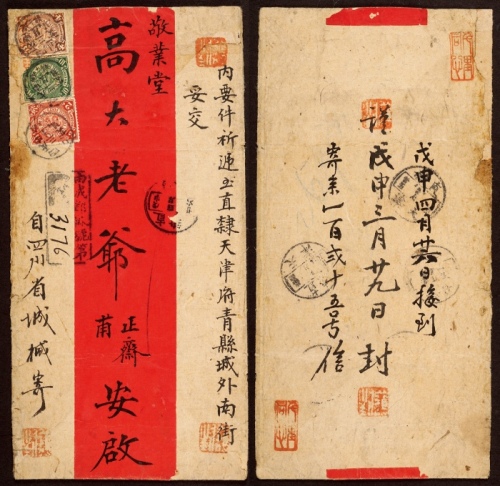 內要件祈遞至直隸天津府青縣城外南街
妥交
敬業堂
高大老爺 正齋甫 安啟
自四川省城椷寄
3176
戊申四月廿六日接到
謹 戊申三月廿九日 封
寄第一百貳十五号信